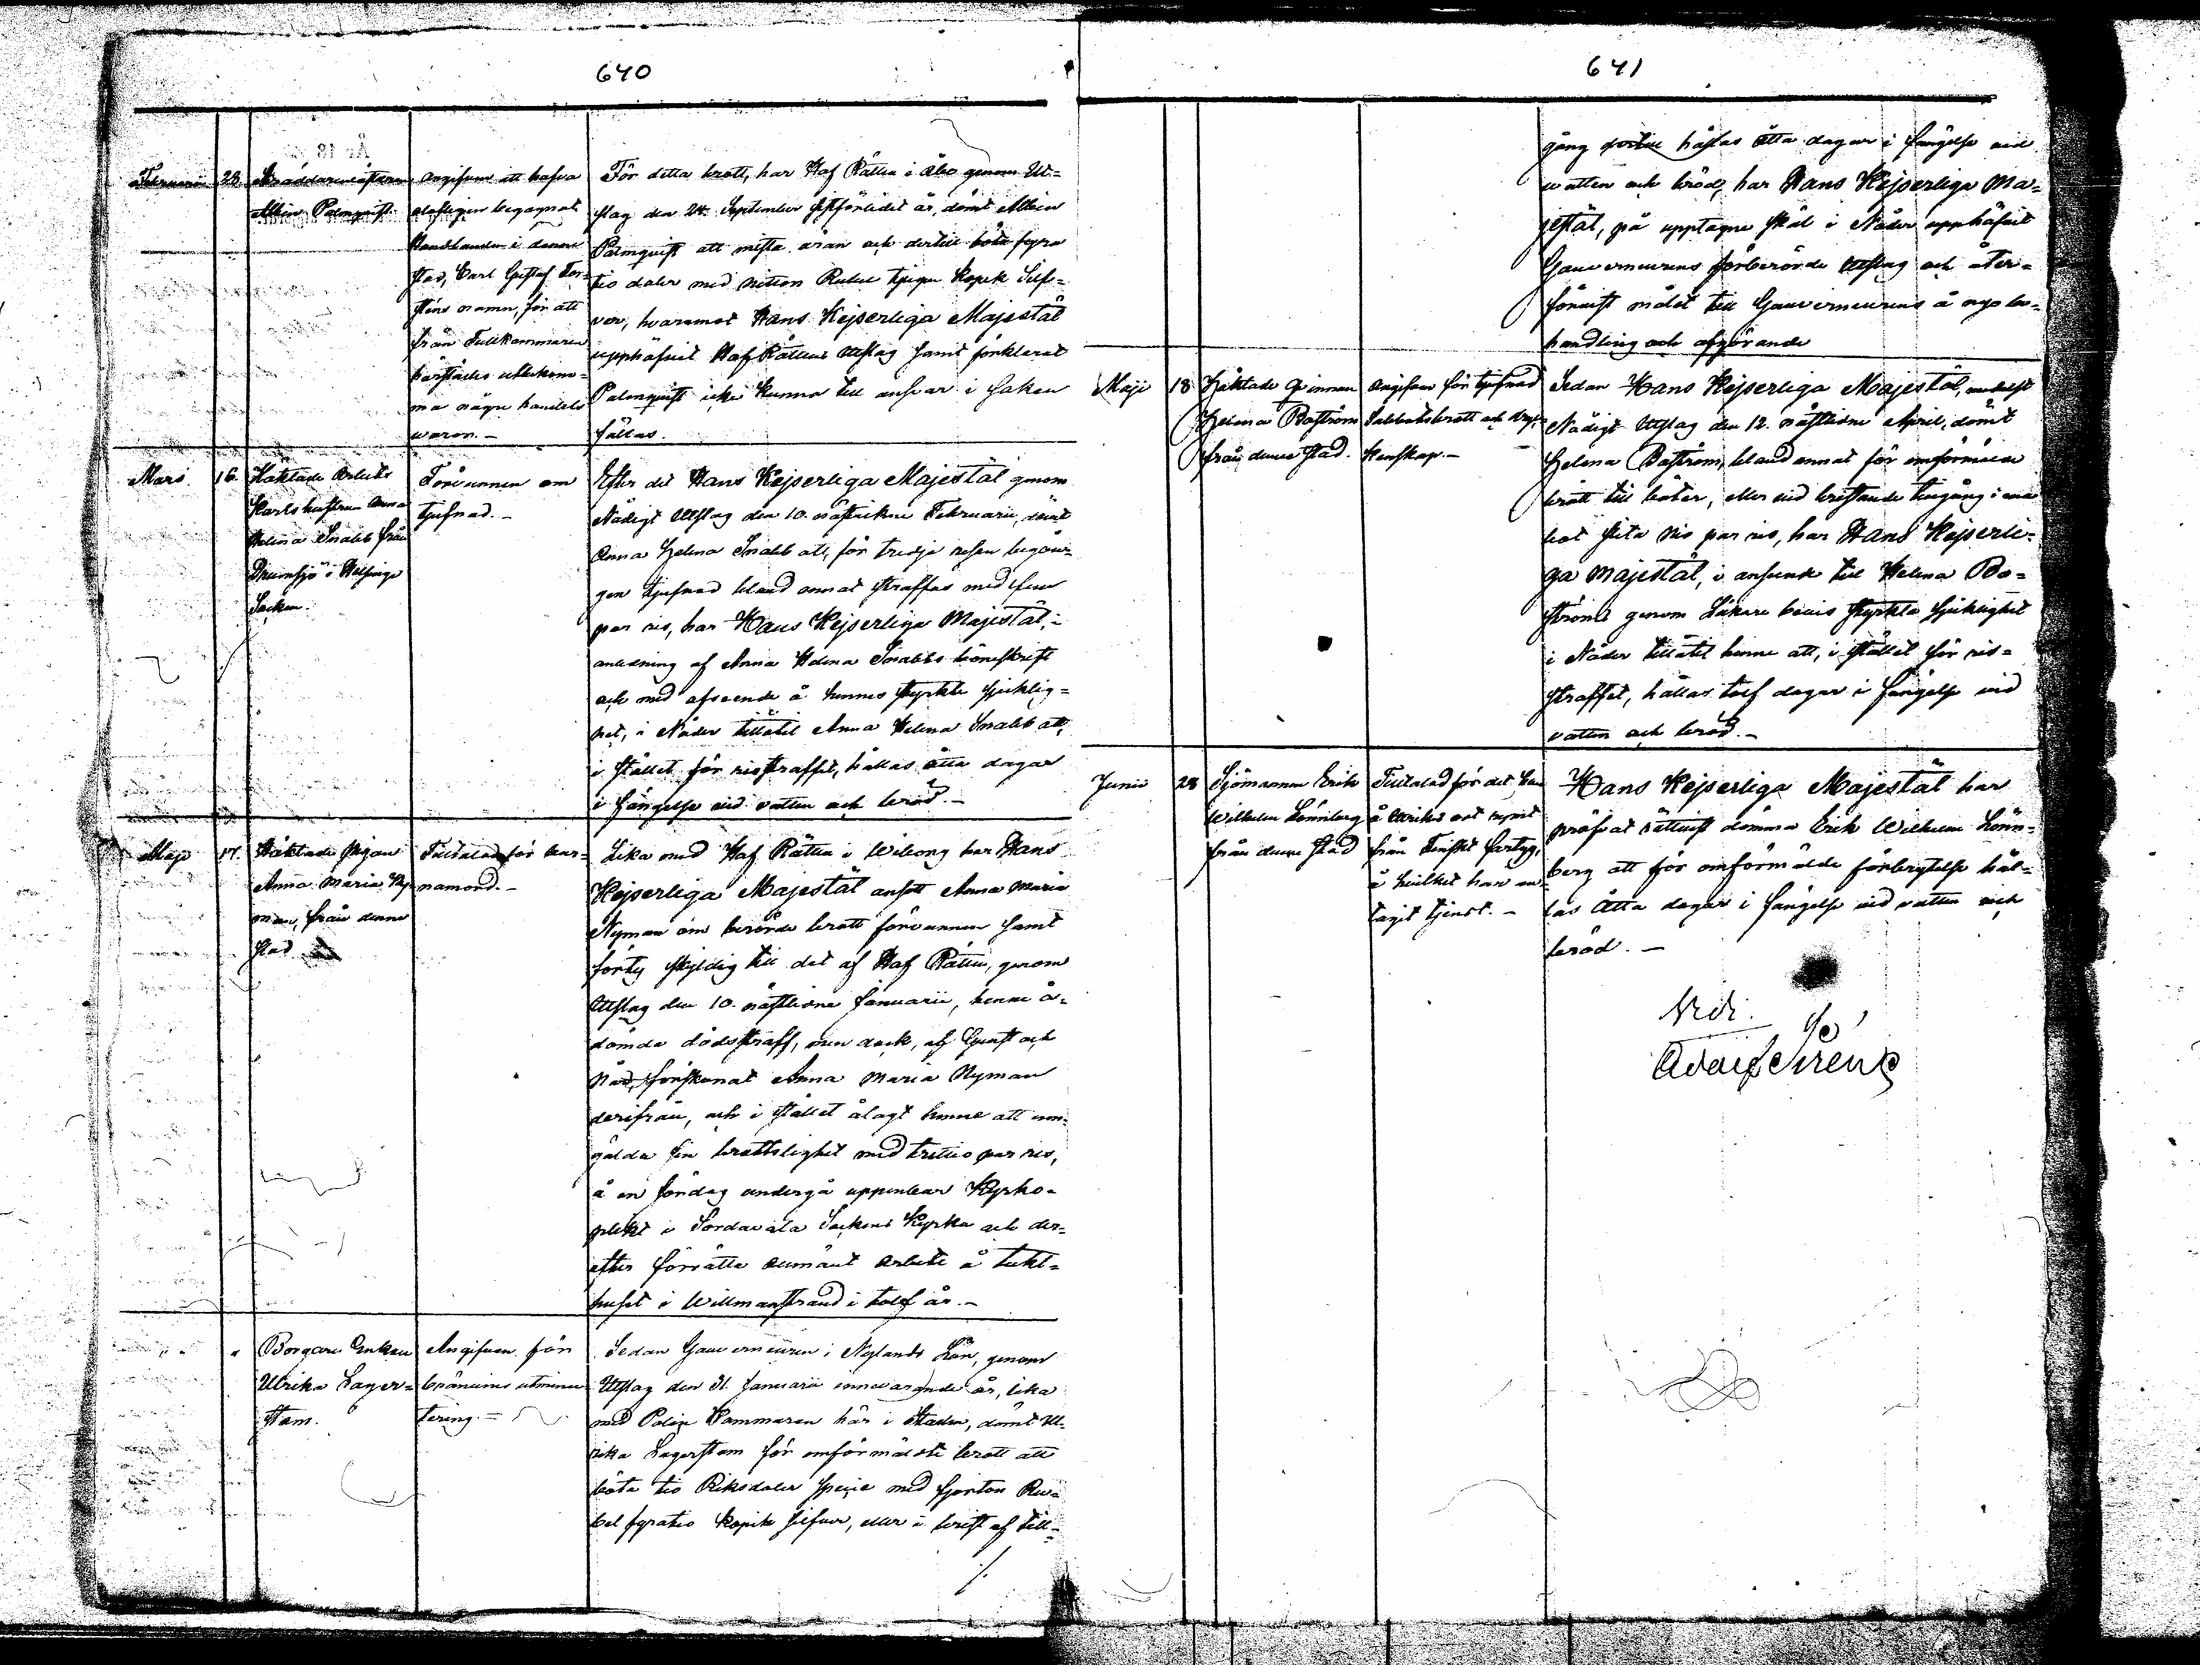 640
Februarii 28. Skräddaremästaren
Albin Palmqvist.
Angifven att hafva
olofligen begagnat
Handlanden i denne
Stad, Carl Gustaf Tor-
sténs namn, för att
från Tullkammaren
härstädes utbekom-
ma några handels
waror.-
För detta brott, har Hof Rätten i Åbo genom Ut-
slag den 24. September sistförlidet år, dömt Albin
Palmqvist att mista äran och dertill böta fyra
tio daler med nitton Rubel tjugu Kopek Silf-
ver, hvaremot Hans Kejserliga Majestät
upphäfvit Hof Rättens Utslag samt förklarat
Palmqvist icke kunna till ansvar i saken
fällas.
Mars 16. Häktade Arbets
Karls hustrun Anna
Helena Snabb från
Drumsjö i Helsinge
Socken.
Förvunnen om
tjufnad.-
Efter det Hans Kejserliga Majestät genom
Nådigt Utslag den 10. nästvekne Februarii, dömt
Anna Helena Snabb att, för tredje resan begån-
gen tjufnad bland annat straffas med fem
par ris, har Hans Kejserliga Majestät, i
anledning af Anna Helena Snabbs böneskrift
och med afseende å hennes styrkte sjuklig-
het, i Nåder tillåtit Anna Helena Snabb att,
i stället för risstraffet, hållas åtta dagar
i fängelse vid vatten och bröd.-
Maji 17. Häktade Pigan
Anna Maria Ny-
man, från denne
stad
Tilltalad för bar-
namord.-
Lika med Hof Rätten i Wiborg har Hans
Kejserliga Majestät ansett Anna Maria
Nyman om berörde brott förvunnen samt
förty skyldig till det af Hof Rätten, genom
Utslag den 10. nästledne Januarii, henne å-
dömda dödsstraff, men dock, af Gunst och
Nåd, förskonat Anna Maria Nyman
derifrån, och i stället ålagt henne att um-
gälda sin brottslighet med trettio par ris,
å en söndag undergå uppenbar Kyrko-
plikt i Sordavala Sockens Kyrka och der-
efter förrätta allmänt arbete å tukt-
huset i Willmanstrand i tolf år.-
" Borgare Enkan
Ulrika Lager-
stam.
Angifven för
bränvins utminu-
tering.-
Sedan Gouverneuren i Nylands Län, genom
Utslag den 31. Januarii innevarande år, lika
med Polis Kammaren här i Staden, dömt Ul-
rika Lagerstam för omförmälde brott att
böta tio Riksdaler Specie med fjorton Ru-
bel fyratio kopek silfver, eller i brist af till-
./.
641
gång dertill hållas åtta dagar i fängelse vid
watten och bröd, har Hans Kejserliga Ma-
jestät, på upptagne skäl i Nåder upphäfvit
Gouverneurens förberörde Utslag och åter-
förvist målet till Gouverneurens å nyo be-
handling och afgörande
Maji 18 Häktade Qvinnan
Helena Boström
från denne Stad.
Angifven för tjufnad
Sabbatsbrott och dryc-
kenskap.-
Sedan Hans Kejserliga Majestät, medelst
Nådigt Utslag den 12. nästledne April, dömt
Helena Boström, bland annat för omförmälde
brott till böter, eller vid bristande tillgång i en
bot slita nio par ris, har Hans Kejserli-
ga Majestät, i anseende till Helena Bo-
ströms genom Läkare bevis styrkta sjuklighet
i Nåder tillåtit henne att, i stället för ris-
straffet, hållas tolf dagar i fängelse vid
vatten och bröd.-
Junii 28 Sjömannen Erik
Wilhelm Lönnberg
från denne Stad
Tilltalad för det han
å Utrikes ort rymt
från Finskt fartyg,
å hvilket han an-
tagit tjenst.-
Hans Kejserliga Majestät har
pröfvat rättvist dömma Erik Wilhelm Lönn-
berg att för omförmälde förbrytelse hål-
las åtta dagar i fängelse vid vatten och
bröd.-